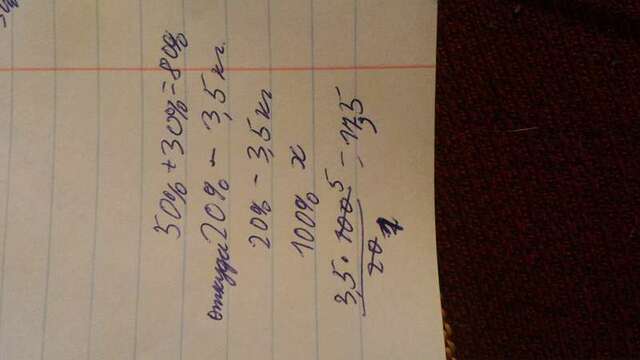 50% + 30% = 80%
откуда 20% - 3,5 кг.
20% - 3,5 кг
100% x
3,5 · 100 5 = 17,5
20 1